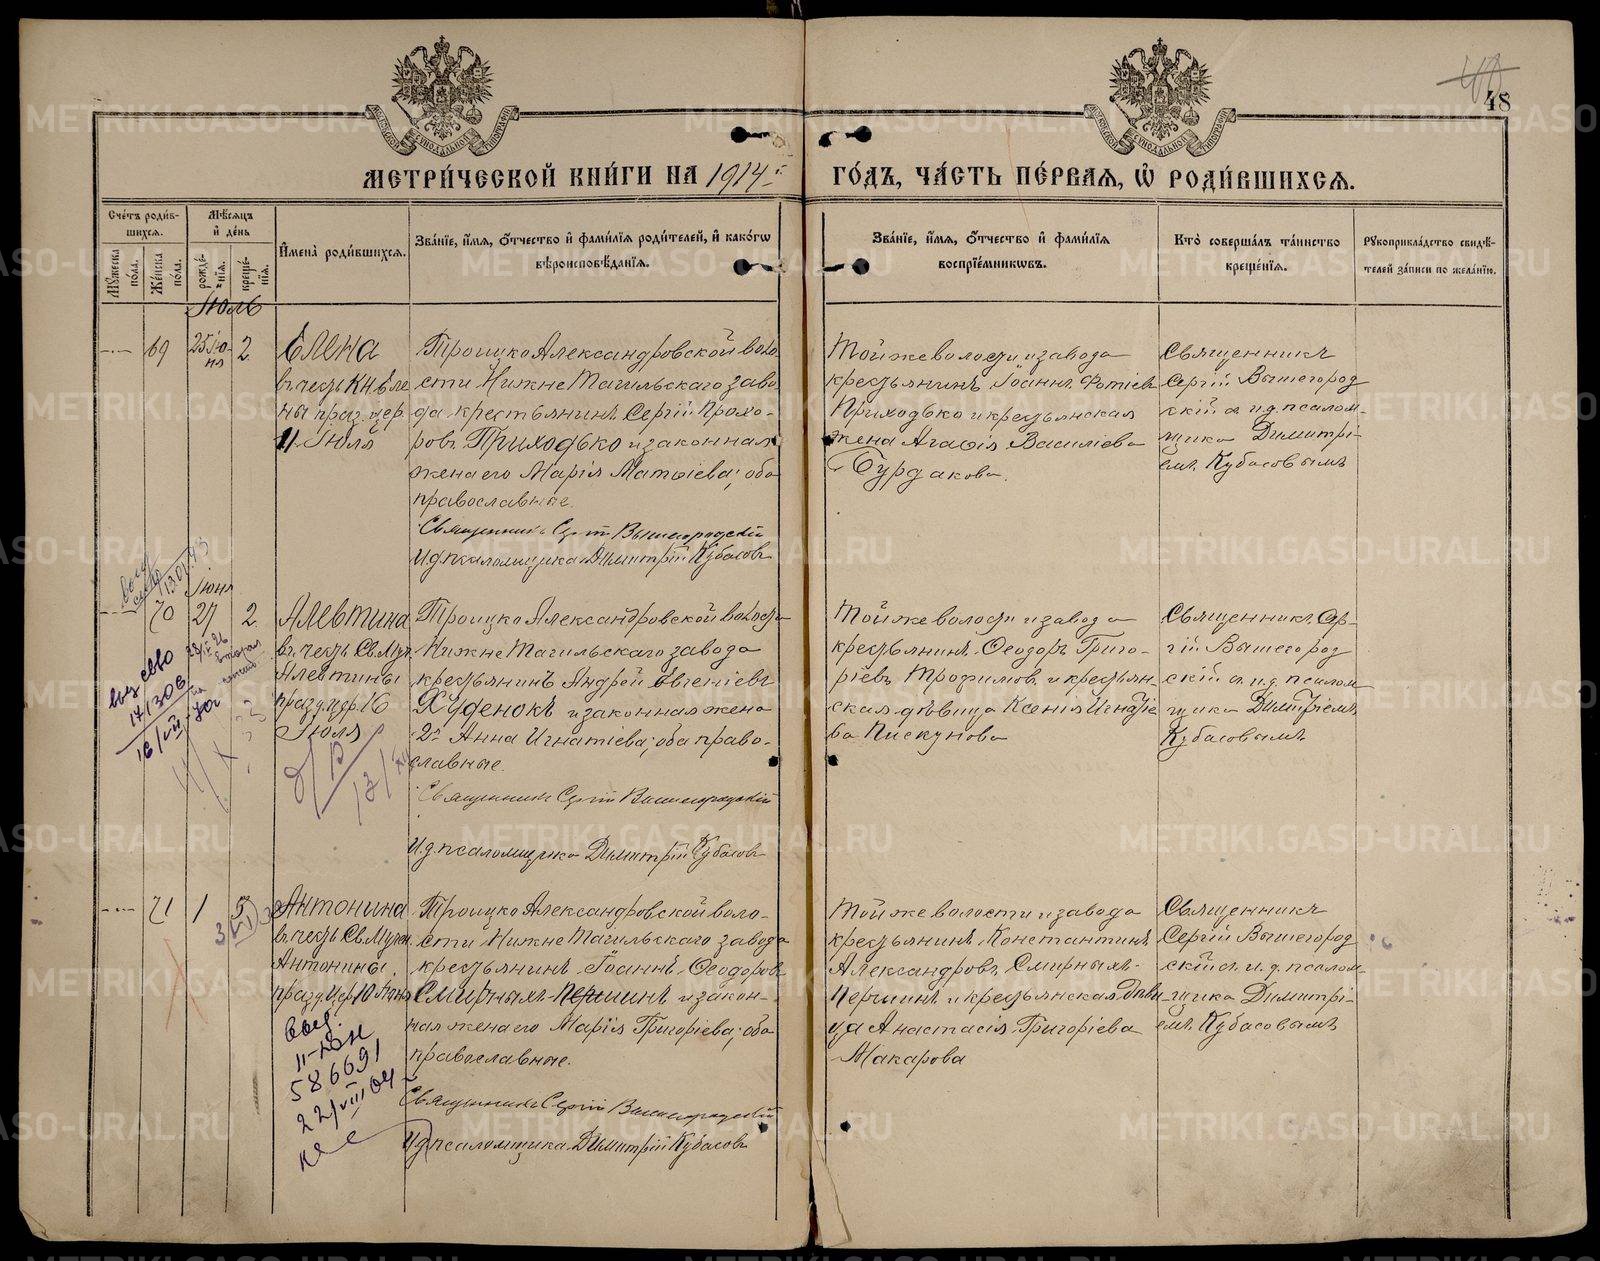 48
МЕТРИ́ЧЕСКОЙ КНИ́ГИ НА 1914 г.
ГО́ДЪ, ЧА́СТЬ ПЕ́РВАЯ, Ѡ РОДИ́ВШИХСЯ.
Сче́тъ роди́в-
шихся.
Мѣ́сяцъ
и́ де́нь
Му́жеска по́ла.
Же́нска по́ла.
рожде́-
нія.
креще́-
нія.
И́мена̀ роди́вшихся.
Зва́ніе, и́мя, ѻ́тчество и́ фами́лія роди́телей, и́ како́гѡ
вѣроисповѣ́данія.
Зва́ніе, и́мя, ѻ́тчество и́ фами́лія
воспріе́мникѡвъ.
Кто̀ соверша́лъ та́инство
креще́нія.
Рукоприкла́дство свидѣ́-
телей за́писи по жела́нію.
Іюль
69
25 Ію-
ня
2
Елена
въ честь Кн. Еле
ны празд. цер.
11 Іюля
Троицко Александровской воло-
сти Нижне Тагильскаго заво-
да крестьянинъ Сергій Прохо-
ровъ Приходько и законная
жена его Марія Матѳіева; оба
православные.
Священникъ Сергій Вышегородскій
И.д. псаломщика Димитрій Кубасовъ
Той же волости и завода
крестьянинъ Іоаннъ Фотіевъ
Приходько и крестьянская
жена Агафія Василіева
Бурдакова.
Священникъ
Сергій Вышегород
скій съ и.д. псалом-
щика Димитрі-
емъ Кубасовымъ
Іюня
70
27
2
Алевтина
въ честь Св. Муч.
Алевтины
празд. цер. 16
Іюля
Троицко Александровской волости
Нижне Тагильскаго завода
крестьянинъ Андрей Евгеніевъ
Худенокъ и законная жена
Анна Игнатіева; оба право-
славные.
Священникъ Сергій Вышегородскій
И.д. псаломщика Димитрій Кубасовъ
Той же волости и завода
крестьянинъ Ѳеодоръ Григо-
ріевъ Трофимовъ и крестьян-
ская дѣвица Ксенія Игнатіе
ва Пискунова
Священникъ Сер-
гій Вышегород
скій съ и.д. псалом
щика Димитріемъ
Кубасовымъ
17/306
16/VII-70г
71
1
5
Антонина
въ честь Св. Мучен.
Антонины.
празд. цер. 10 Іюня
Троицко Александровской воло-
сти Нижне Тагильскаго завода
крестьянинъ Іоаннъ Ѳеодоровъ
Смирныхъ-Першинъ и закон-
ная жена его Марія Григоріева; оба
православные.
Священникъ Сергій Вышегородскій
И.д. псаломщика Димитрій Кубасовъ
Той же волости и завода
крестьянинъ Константинъ
Александровъ Смирныхъ-
Першинъ и крестьянская дѣви
ца Анастасія Григоріева
Макарова
Священникъ
Сергій Вышегород
скій съ и.д. псалом-
щика Димитрі-
емъ Кубасовымъ
586691
22/VIII 04
METRIKI.GASO-URAL.RU